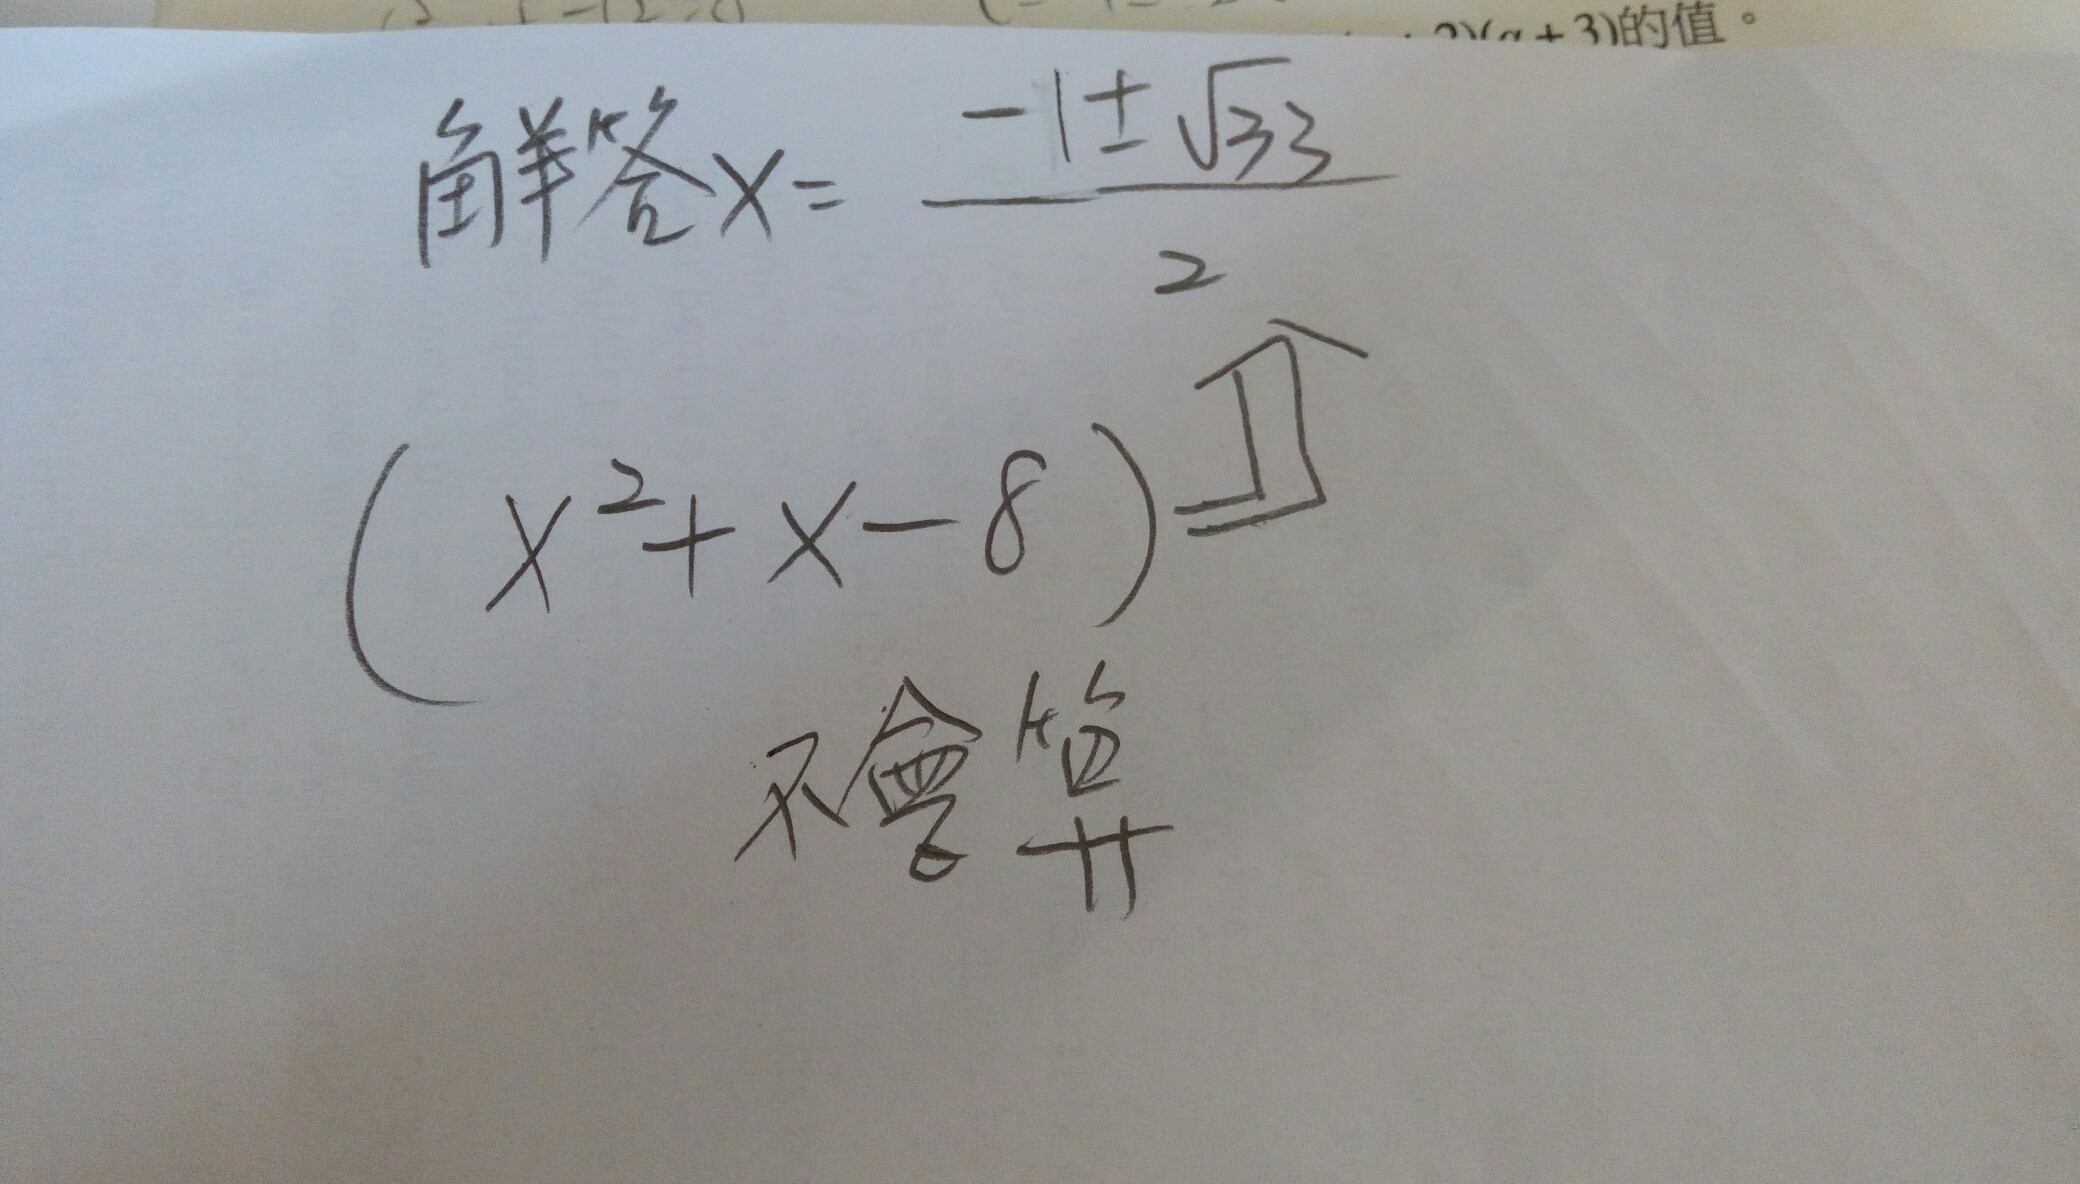 (a + 3)的值。
解答 x = (-1 ± √33) / 2
(x² + x - 8)
不會算